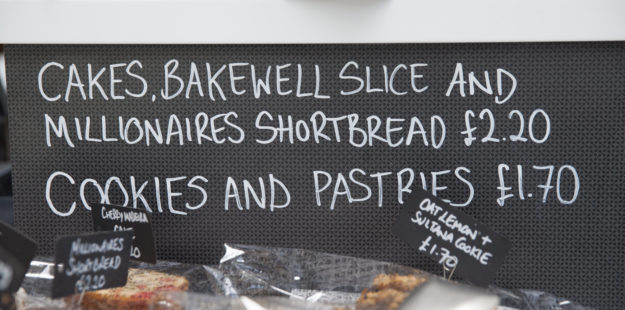 CAKES, BAKEWELL SLICE AND
MILLIONAIRES SHORTBREAD £2.20
COOKIES AND PASTRIES £1.70
CHERRY MADEIRA
CAKE
MILLIONAIRES
SHORTBREAD
£2.20
OAT LEMON +
SULTANA COOKIE
£1.70